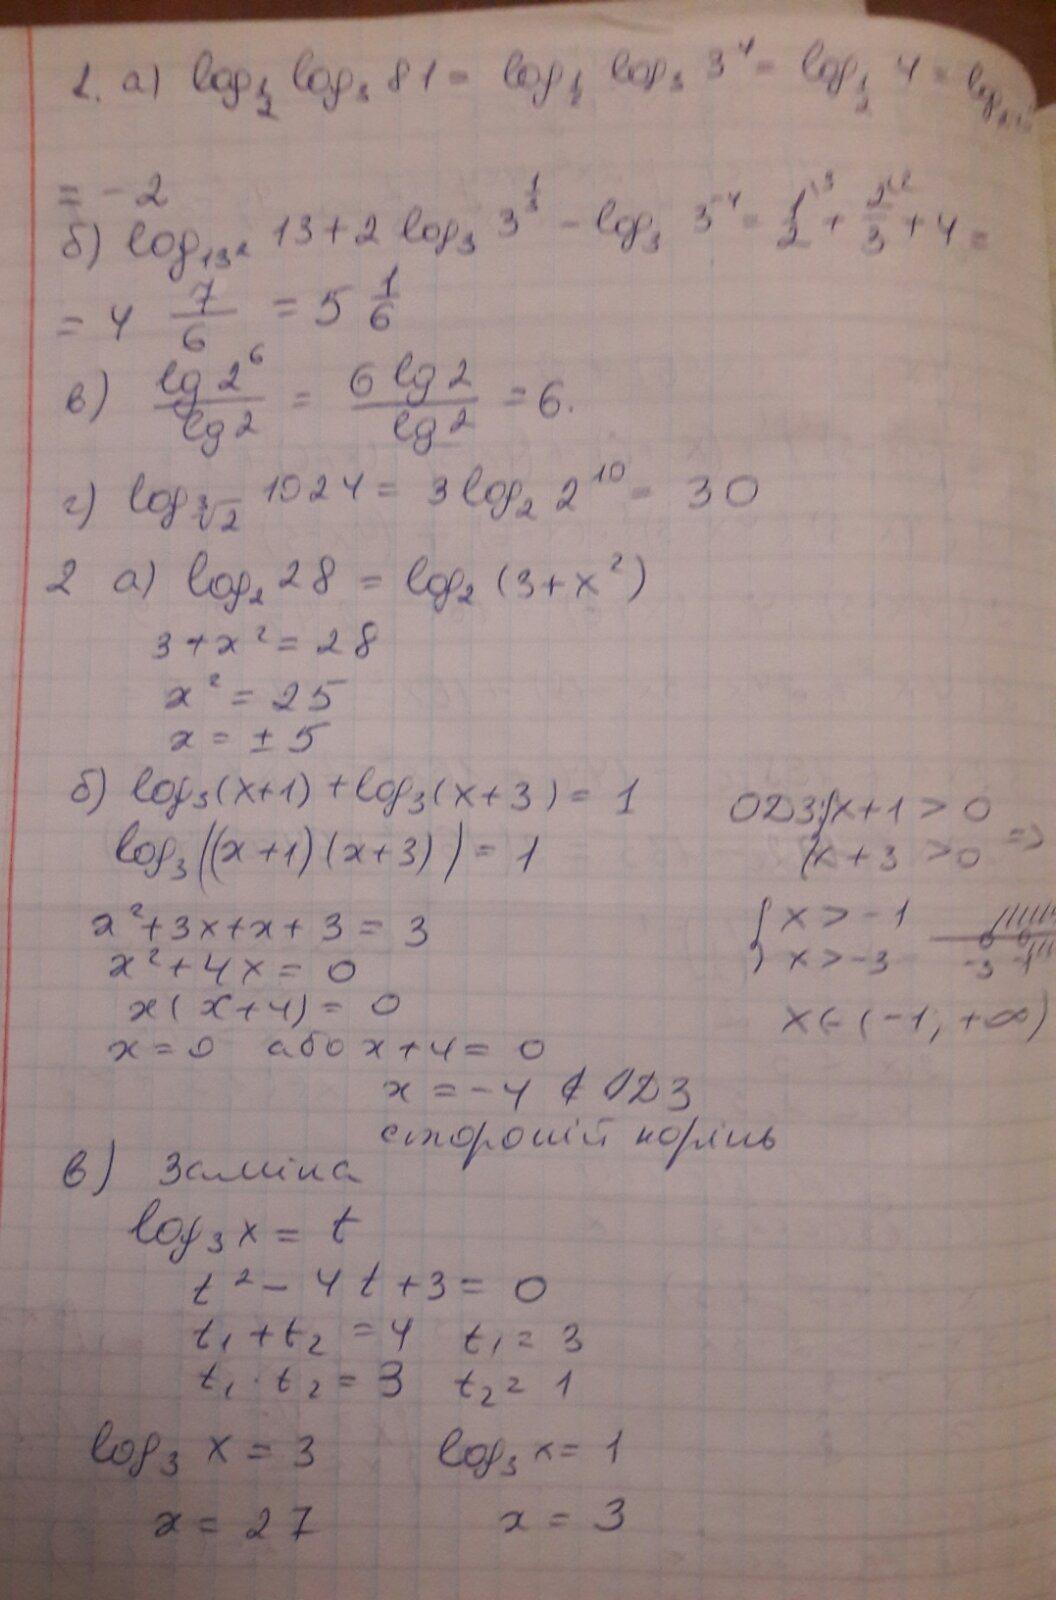 1. а) log_{1/2} log_3 81 = log_{1/2} log_3 3^4 = log_{1/2} 4 =
= -2
б) log_{13^2} 13 + 2 log_3 3^{1/3} - log_3 3^{-4} = 1/2^{\3} + 2/3^{\2} + 4 =
= 4 7/6 = 5 1/6
в) lg 2^6 / lg 2 = 6 lg 2 / lg 2 = 6.
г) log_{∛2} 1024 = 3 log_2 2^{10} = 30
2 а) log_2 28 = log_2 (3+x^2)
3+x^2 = 28
x^2 = 25
x = ± 5
б) log_3(x+1) + log_3(x+3) = 1
log_3((x+1)(x+3)) = 1
x^2+3x+x+3 = 3
x^2+4x = 0
x(x+4) = 0
x=0 або x+4 = 0
x = -4 ∉ ОДЗ
сторонній корінь
ОДЗ: {x+1 > 0
{x+3 > 0 =>
{ x > -1
x > -3 -3 -1
x ∈ (-1; +∞)
в) Заміна
log_3 x = t
t^2 - 4t + 3 = 0
t_1 + t_2 = 4 t_1 = 3
t_1 · t_2 = 3 t_2 = 1
log_3 x = 3 log_3 x = 1
x = 27 x = 3